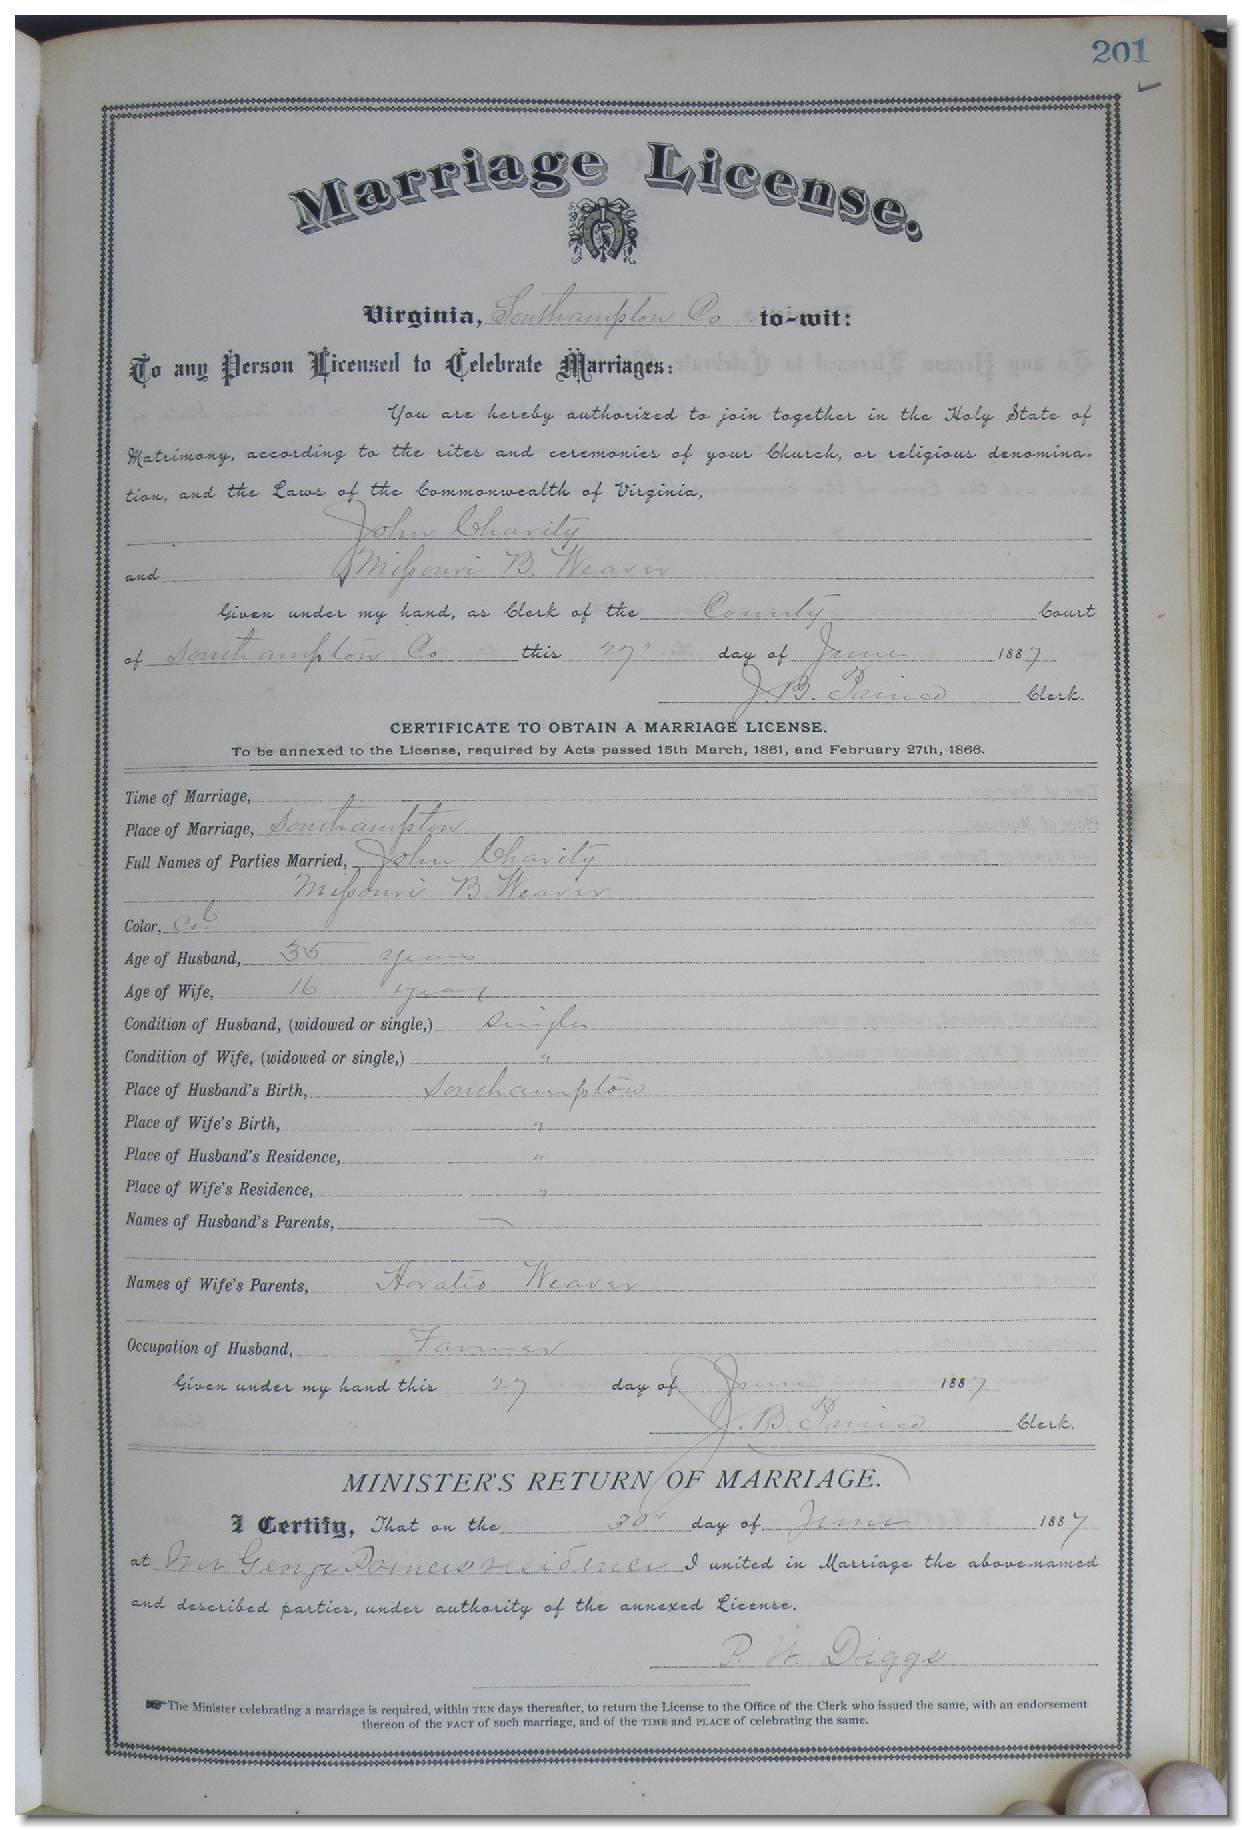 201
Marriage License.
Virginia, Southampton Co to-wit:
To any Person Licensed to Celebrate Marriages:
You are hereby authorized to join together in the Holy State of
Matrimony, according to the rites and ceremonies of your Church, or religious denomina-
tion, and the Laws of the Commonwealth of Virginia,
John Charity
and Missouri B. Weaver
Given under my hand, as Clerk of the County Court
of Southampton Co this 27" day of June 1887
J. B. Prince Clerk.
CERTIFICATE TO OBTAIN A MARRIAGE LICENSE.
To be annexed to the License, required by Acts passed 15th March, 1861, and February 27th, 1866.
Time of Marriage,
Place of Marriage, Southampton
Full Names of Parties Married, John Charity
Missouri B Weaver
Color, Col
Age of Husband, 35 years
Age of Wife, 16 years
Condition of Husband, (widowed or single,) Single
Condition of Wife, (widowed or single,) "
Place of Husband's Birth, Southampton
Place of Wife's Birth, "
Place of Husband's Residence, "
Place of Wife's Residence, "
Names of Husband's Parents, —
Names of Wife's Parents, Horatio Weaver
Occupation of Husband, Farmer
Given under my hand this 27 day of June 1887
J. B. Prince Clerk.
MINISTER'S RETURN OF MARRIAGE.
I Certify, That on the 30" day of June 1887
at Mr residence I united in Marriage the above-named
and described parties, under authority of the annexed License.
P. W. Diggs
The Minister celebrating a marriage is required, within TEN days thereafter, to return the License to the Office of the Clerk who issued the same, with an endorsement
thereon of the FACT of such marriage, and of the TIME and PLACE of celebrating the same.